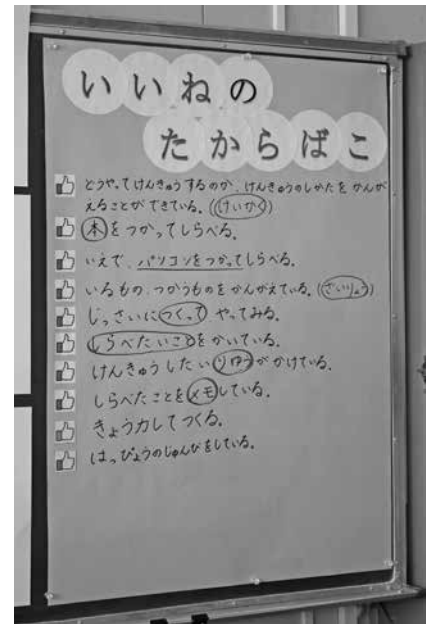 いいねの
たからばこ
どうやってけんきゅうするのか、けんきゅうのしかたをかんが
えることができている。((けいかく))
本をつかってしらべる。
いえで、パソコンをつかってしらべる。
いるもの、つかうものをかんがえている。((ざいりょう))
じっさいにつくって、やってみる。
しらべたいことをかいている。
けんきゅうしたいりゆうがかけている。
しらべたことをメモしている。
きょう力してつくる。
はっぴょうのじゅんびをしている。